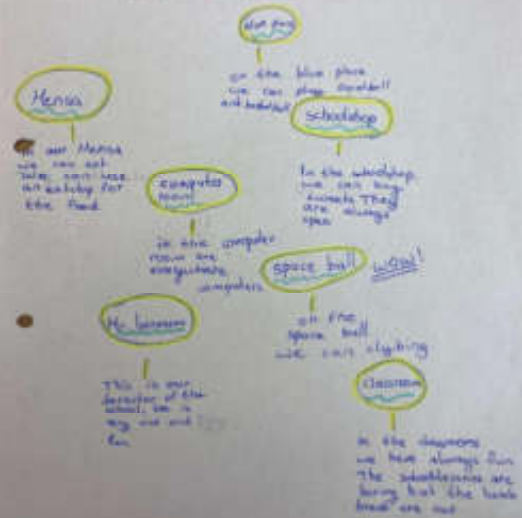 blue place
on the blue place
we can play football
and basketball
Mensa
in our Mensa
we can eat
we can use
for
the food
schoolshop
In the schoolshop
we can buy
sweets They
are always
open
computer
room
in the computer
room are
everywhere
computers
space ball WOW!
on the
space ball
we can clybing
Mr.
This is our
director of the
school. He is
very nice and
fun
Classroom
In the classrooms
we have always fun
The schoollessons are
boring but the lunch
break are